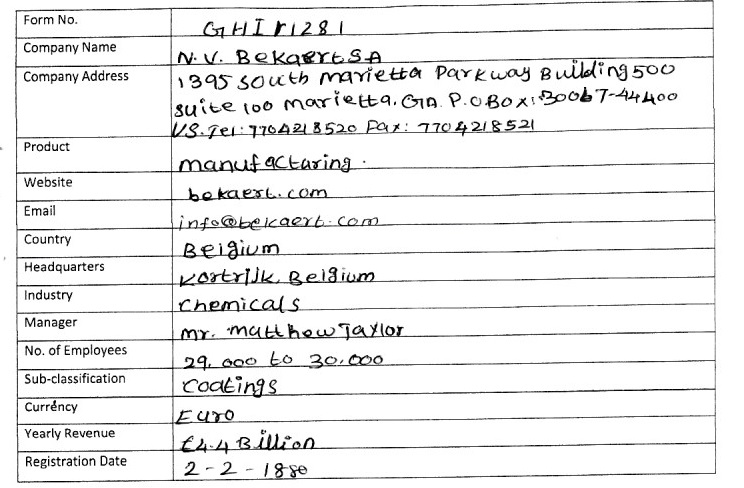 Form No. GHIr1281
Company Name N.V. Bekaert SA
Company Address 1395 South marietta Parkway Building 500
suite 100 marietta, GA. P.O BOX: 30067-44400
US. Tel: 7704218520 Fax: 7704218521
Product manufacturing.
Website bekaert.com
Email info@bekaert.com
Country Belgium
Headquarters Kortrijk, Belgium
Industry chemicals
Manager mr. matthew Taylor
No. of Employees 29,000 to 30,000
Sub-classification coatings
Currency Euro
Yearly Revenue €4.4 Billion
Registration Date 2-2-1880